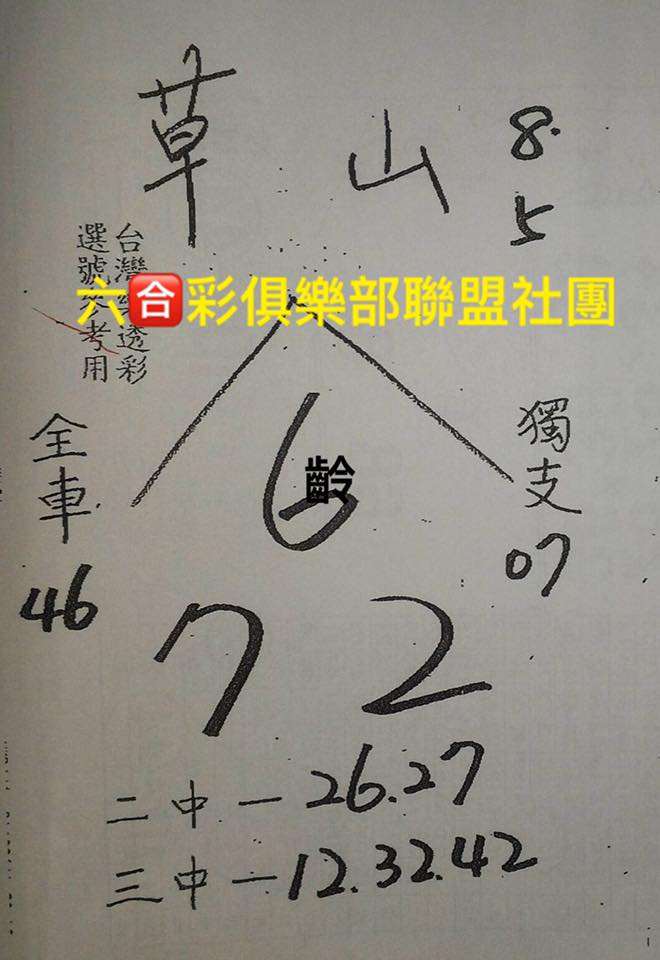 草山
8.
5
台灣
透彩
選號
考用
六合彩俱樂部聯盟社團
全車
46
獨支
07
6
齡
7 2
二中一26.27
三中一12.32.42